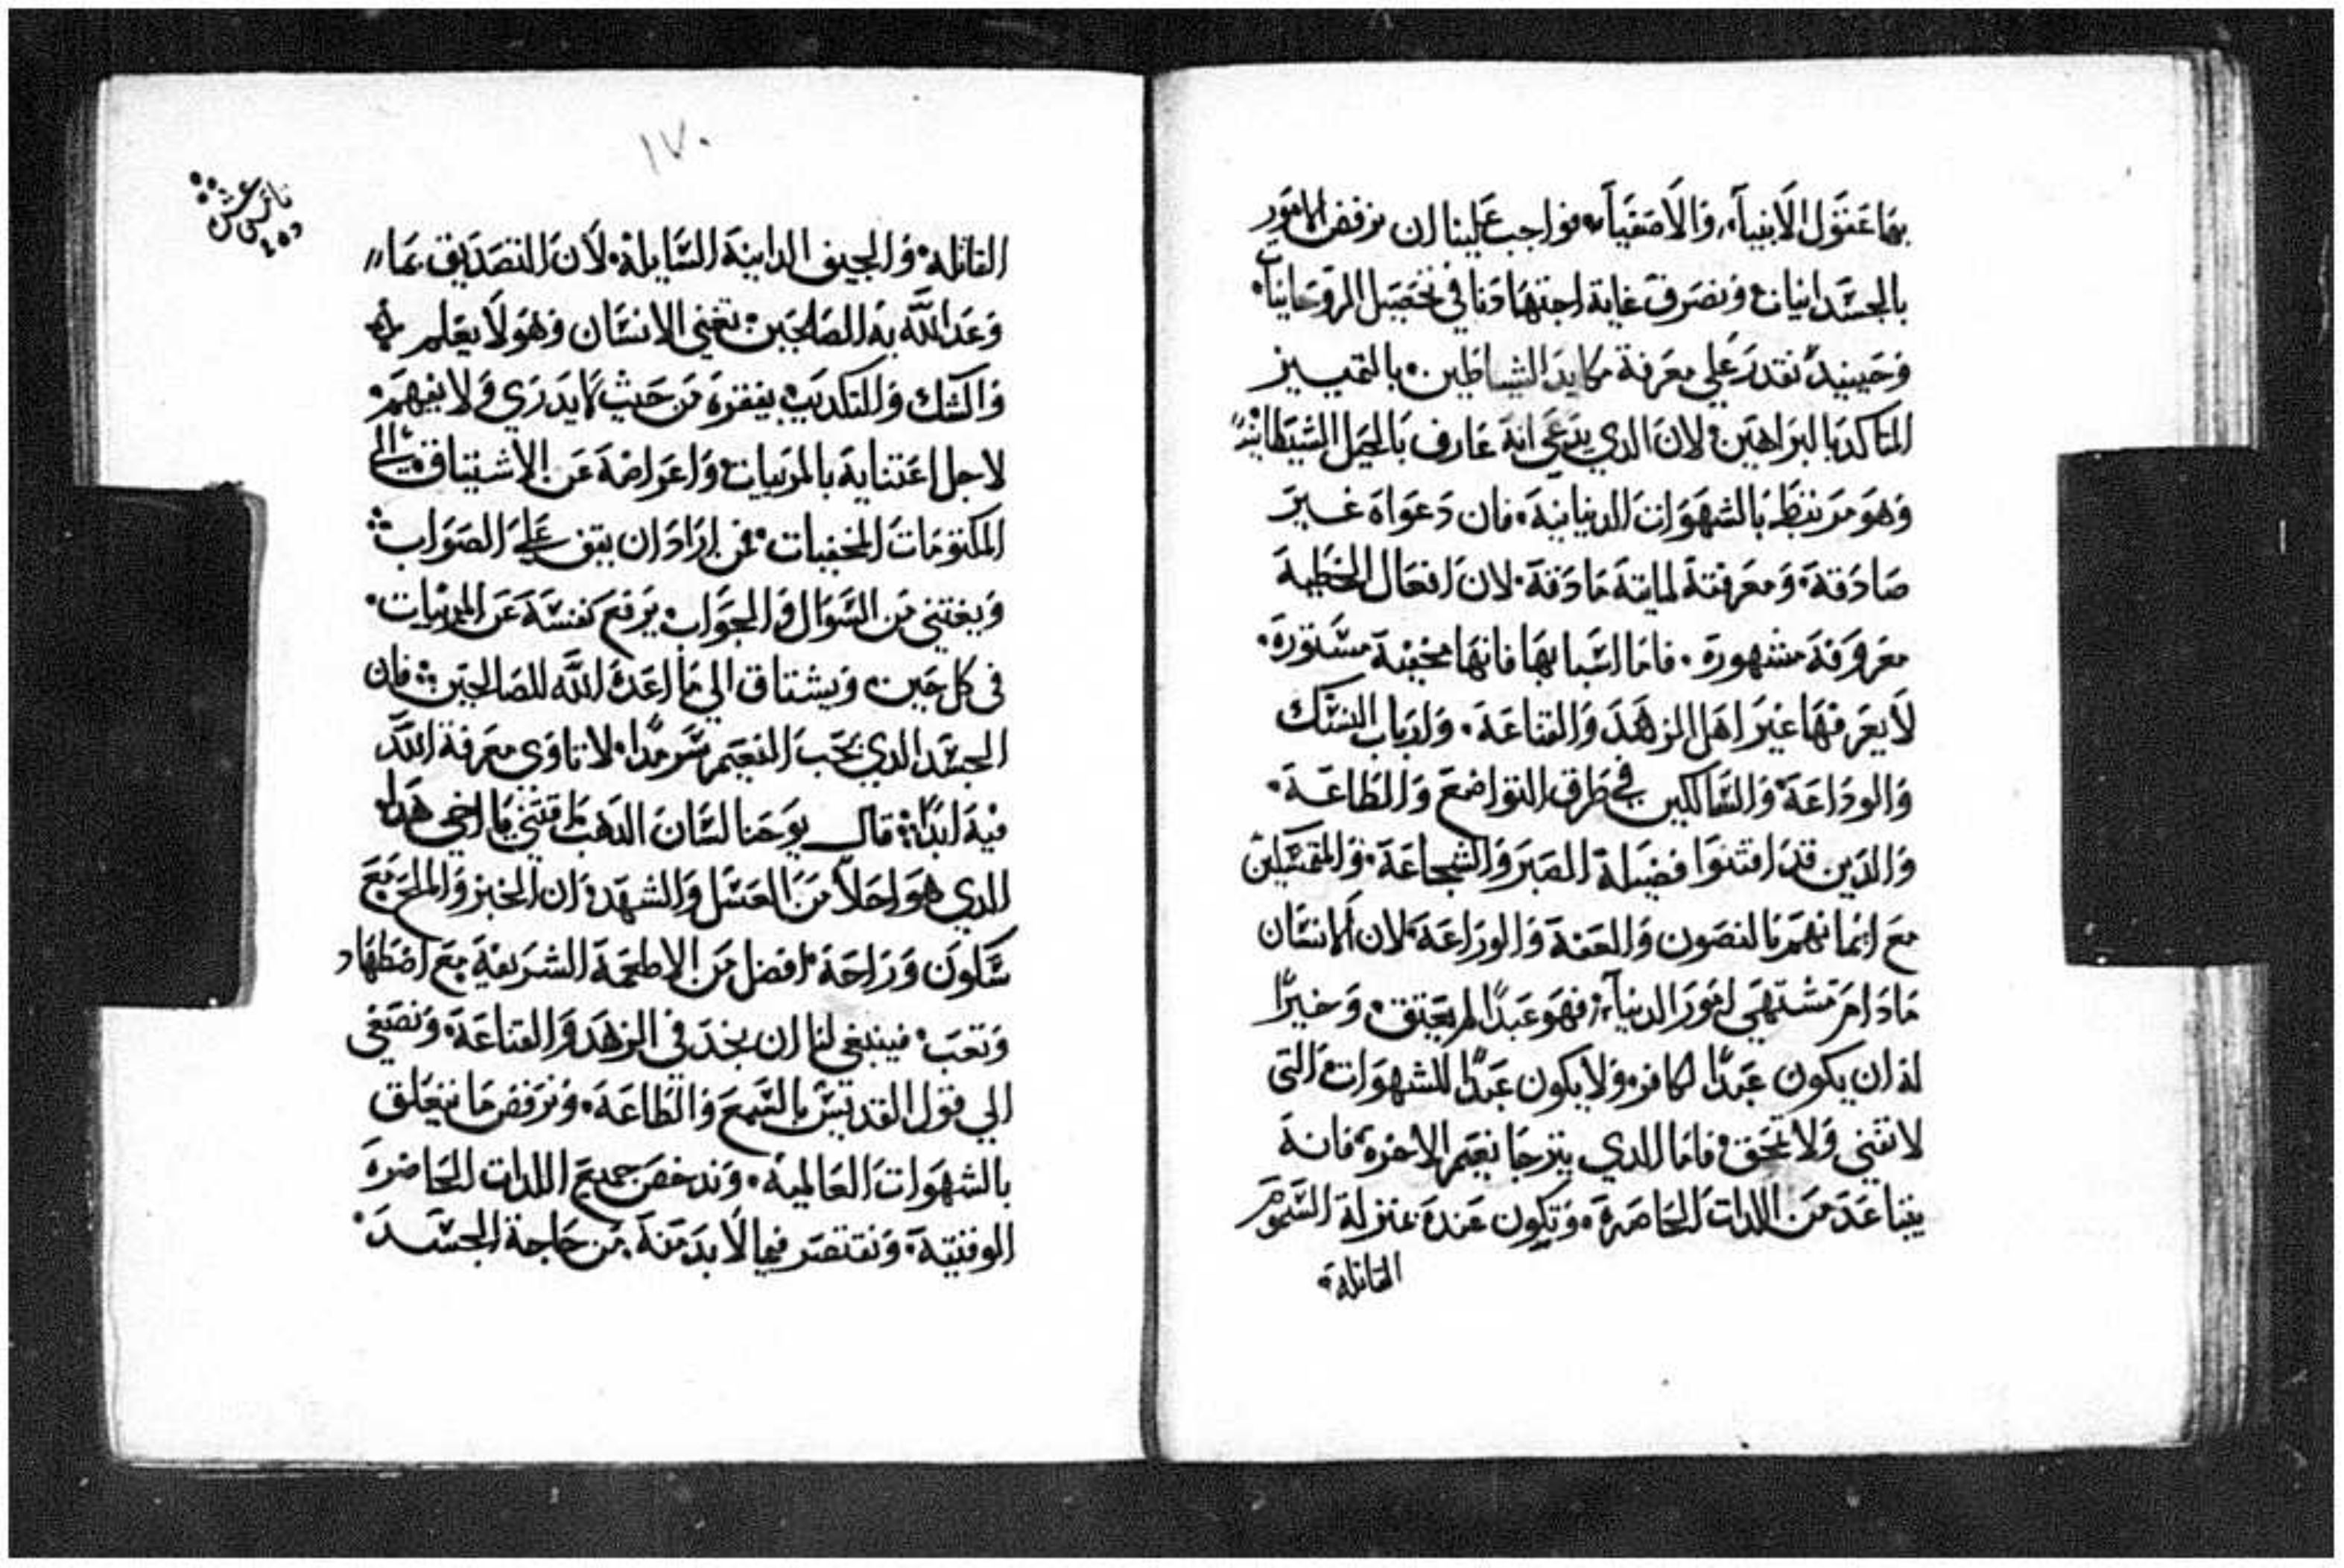 بما عنقول الانبيآء، والاصفيآء، فواجب علينا ان نرفض الامور
بالجسدانيات ونصرف غاية اجتهادنا في تحصيل الروحانيات
وحينيد نقدر علي معرفة مكايد الشياطين. بالتمييز
المتاكد بالبراهين لان الدي يدعي انه عارف بالحيل الشيطانيه
وهو مرتبط بالشهوات الدنيانية. فان دعواه غير
صادقة. ومعرفته لماينه مادقة. لان افعال الخطية
معروفة مشهورة. فاما اسبابها فانها مخفية مستورة.
لا يعرفها غير اهل الزهد والقناعة. ولدباب النسك
والوداعة والسالكين في طرق التواضع والطاعة.
والدين قد اقتنوا فضيلة الصبر والشجاعة. والمتمسكين
مع ايمانهم بالتصون والعفة والوراعة. لان الانسان
مادام مشتهي امور الدنيآء فهو عبدًا لم يعتق. وخيرًا
له ان يكون عبدًا لكافر ولا يكون عبدًا للشهوات التي
لا تفني ولا تمحق فاما الدي يترجا نعيم الاخرة فانه
يتباعد من اللدات الحاضرة. وتكون عنده بمنزلة السموم
القاتلة.
١٧٠
القاتلة. والجيف الداينة السايلة. لان التصديق بما
وعد الله به الصالحين: تغني الانسان وهو لا يعلم
والشك والتكديب يفقره من حيث لا يدري ولا يفهم.
لاجل اعتنايه بالمرييات واعراضه عن الاشتياق الي
المكتومات المخفيات. فمن اراد ان يقف علي الصواب
ويغتني من السوال والجواب. يرفع نفسه عن المرييات.
في كل حين ويشتاق الي ما اعده الله للصالحين: فان
الجسد الدي يحب التنعيم سرمدًا. لا تاوي معرفة الله
فيه ابدًا: قال يوحنا لسان الدهب ما قتني يا اخي هدا
الدي هو احلا من العسل والشهد: ان الخبز والملح مع
سكون وراحة. افضل من الاطعمة الشريفة مع اضطهاد
وتعب. فينبغي لنا ان نجد في الزهد والقناعة. ونصغي
الي قول القديس بالسمع والطاعة. ونرفض ما يتعلق
بالشهوات العالمية. وندحض جميع اللدات الحاضرة
الوقتية. ونقتصر فيما لا بد منه. من حاجة الجسد.